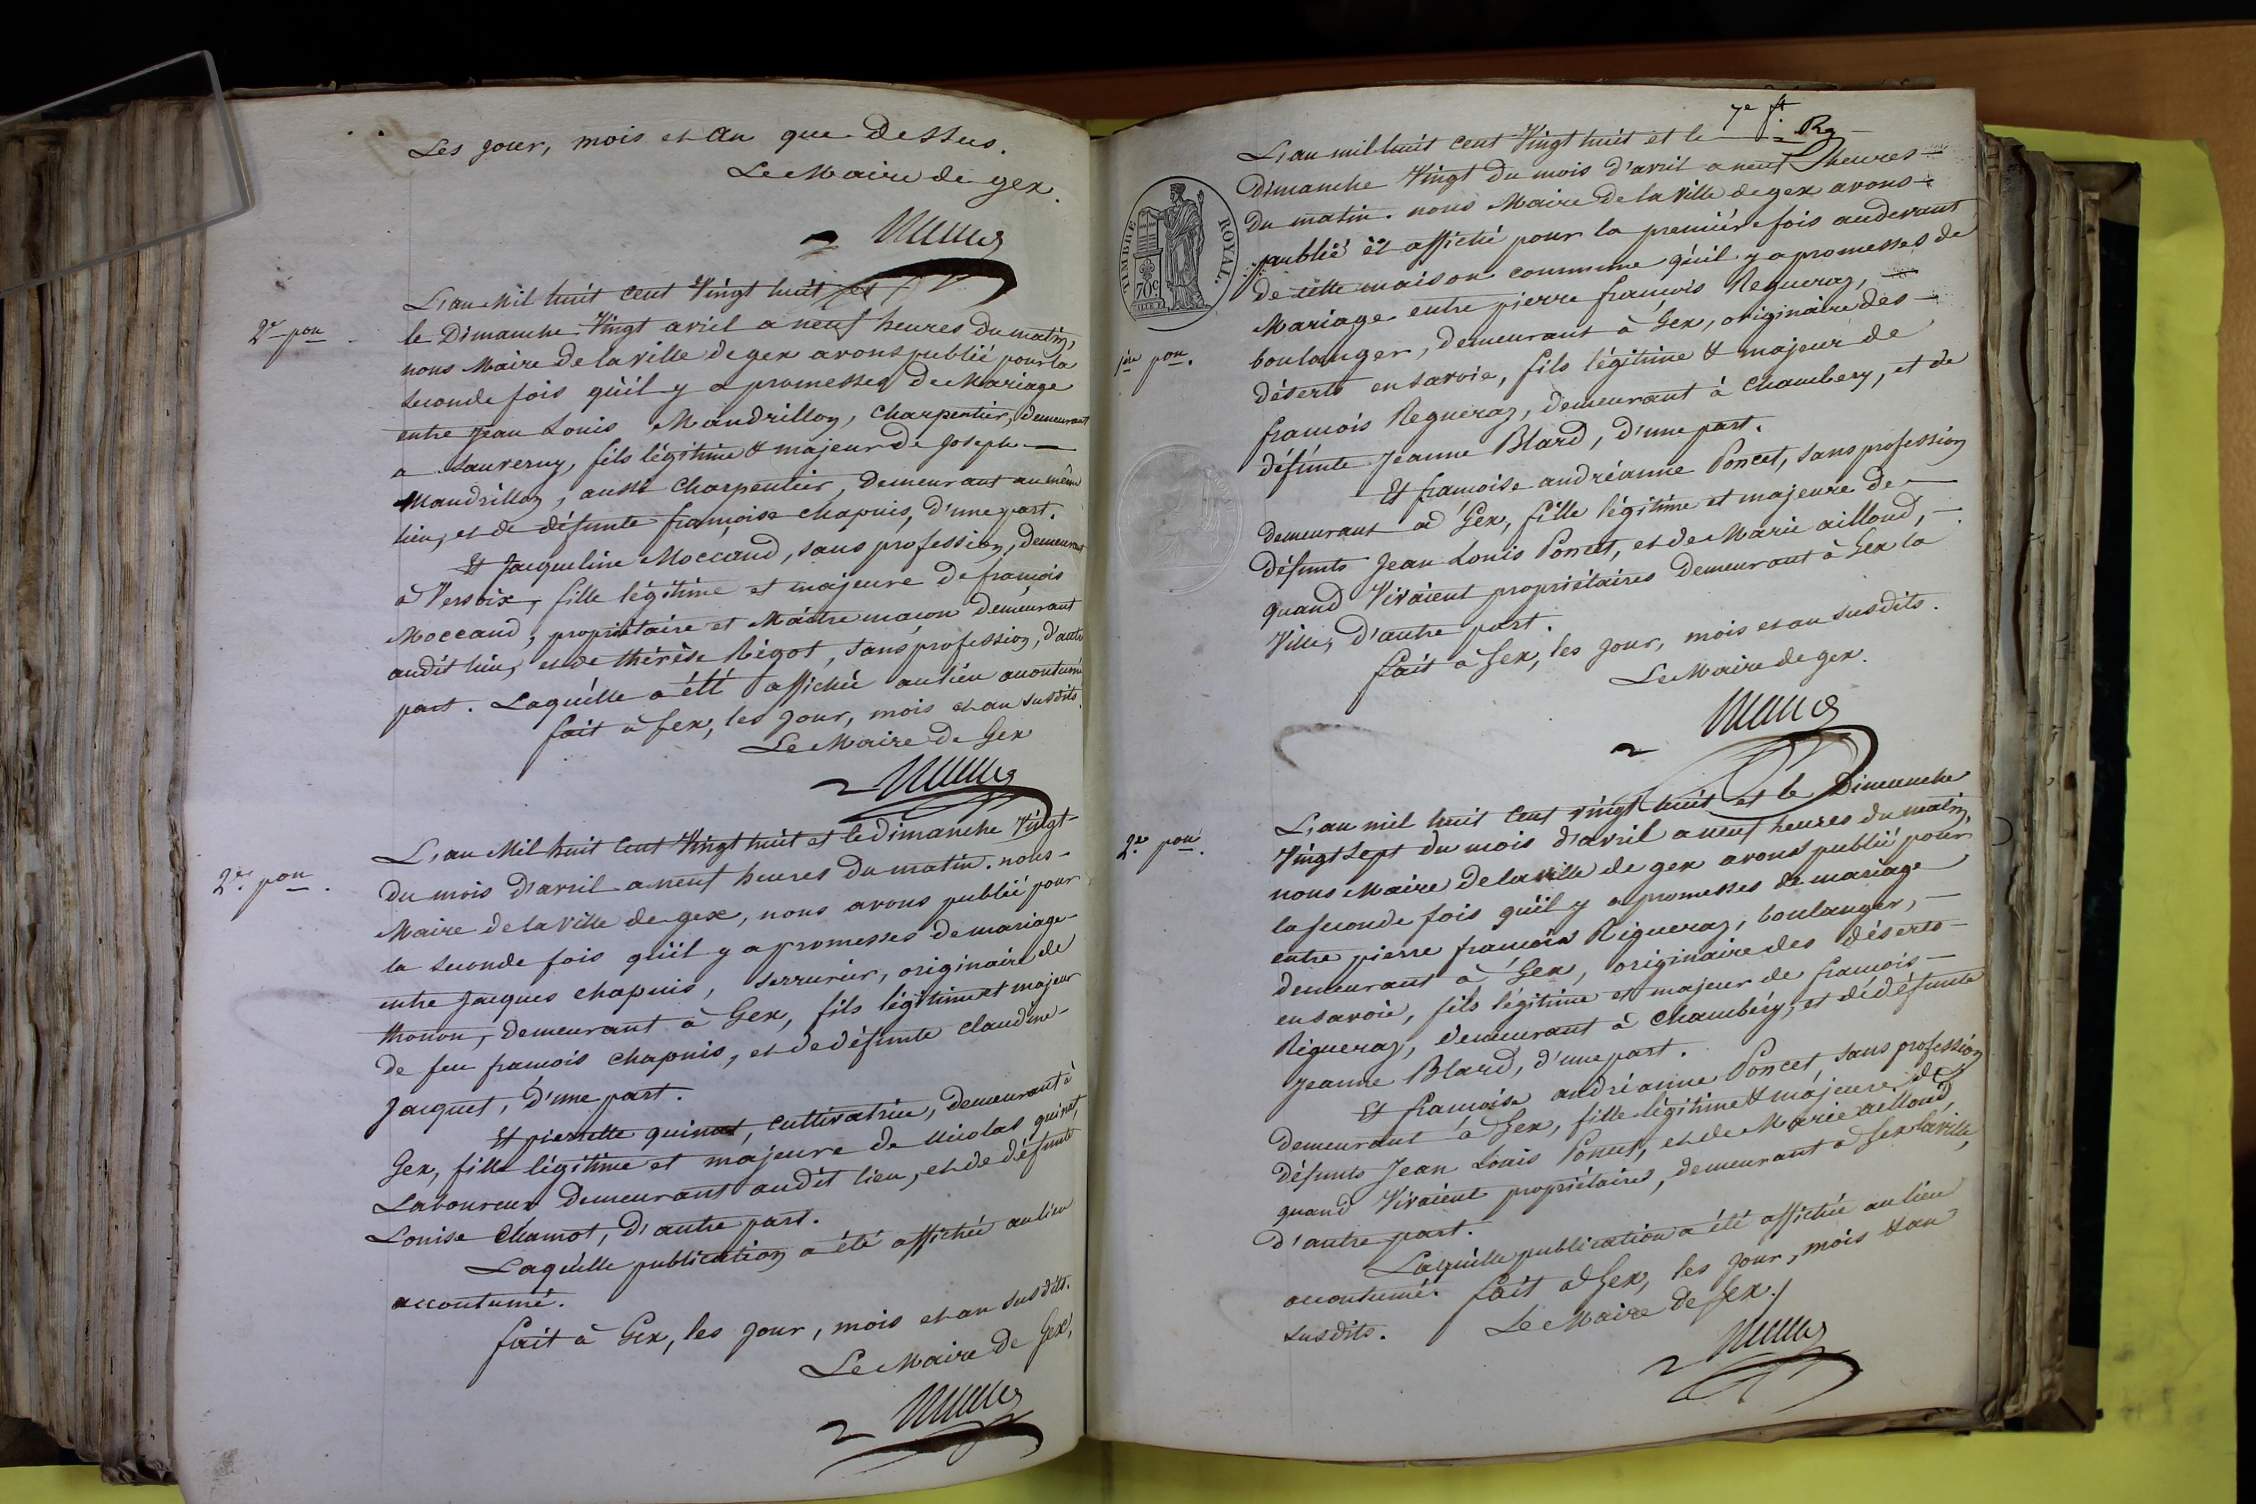 Les jour, mois et an que dessus.
Le Maire de gex.
2e pon
L'an Mil huit cent Vingt huit et
le Dimanche Vingt avril a neuf heures du matin,
nous Maire de la ville de gex avons publié pour la
seconde fois qu'il y a promesses de Mariage
entre Jean Louis Mandrillon, Charpentier, demeurant
a Sauverny, fils légitime & majeur de Joseph
Mandrillon, aussi Charpentier, demeurant au même
lieu, et de défunte françoise Chapuis, d'une part.
Et Jacqueline Moccand, sans profession, demeurant
à Versoix, fille légitime et majeure de françois
Moccand, propriétaire et Maitre maçon demeurant
audit lieu, et de thérèse Rigot, sans profession, d'autre
part. Laquelle a été affichée au lieu accoutumé
fait à Gex, les jour, mois et an susdits.
Le Maire de Gex
2e pon.
L'an Mil huit Cent Vingt huit et le dimanche Vingt
du mois d'avril a neuf heures du matin. nous
Maire de la ville de gex, nous avons publié pour
la seconde fois qu'il y a promesses de mariage
entre Jacques Chapuis, Serrurier, originaire de
thonon, demeurant à Gex, fils légitime et majeur
de feu françois Chapuis, et de défunte Claudine
Jacquet, d'une part.
Et pierrette quinat, cultivatrice, demeurant à
Gex, fille légitime et majeure de Nicolas quinat,
Laboureur demeurant audit lieu, et de défunte
Louise Chamot, d'autre part.
Laquelle publication a été affichée au lieu
accoutumé.
fait à Gex, les jour, mois et an susdits.
Le Maire de Gex,
7e ft.
TIMBRE ROYAL.
70c
1ère pon.
L'an mil huit cent Vingt huit et le
Dimanche Vingt du mois d'avril a neuf heures
du matin. nous Maire de la ville de gex avons
publié et affiché pour la première fois audevant
de cette maison commune qu'il y a promesses de
Mariage entre pierre françois Requeraz,
boulanger, demeurant à Gex, originaire des
déserts en savoie, fils légitime & majeur de
françois Requeraz, demeurant à Chambery, et de
défunte Jeanne Blard, d'une part.
Et françoise andréanne Poncet, sans profession
demeurant à Gex, fille légitime et majeure de
défunts Jean Louis Poncet, et de Marie ailloud,
quand Vivaient propriétaires demeurant à Gex la
Ville, d'autre part.
fait à Gex, les jour, mois et an susdits.
Le Maire de gex.
2e pon.
L'an mil huit Cent vingt huit et le Dimanche
Vingt sept du mois d'avril a neuf heures du matin,
nous Maire de la ville de gex avons publié pour
la seconde fois qu'il y a promesses de mariage
entre pierre françois Rigueraz, boulanger,
demeurant à Gex, originaire des déserts
en savoie, fils légitime et majeur de françois
Rigueraz, demeurant à Chambéry, et de défunte
Jeanne Blard, d'une part.
Et françoise andréanne Poncet, sans profession
demeurant à Gex, fille légitime & majeure de
défunts Jean Louis Poncet, et de Marie ailloud,
quand Vivaient propriétaires, demeurant à Gex la ville,
d'autre part.
Laquelle publication a été affichée au lieu
accoutumé. fait à Gex, les jour, mois & an
susdits.
Le Maire de Gex.